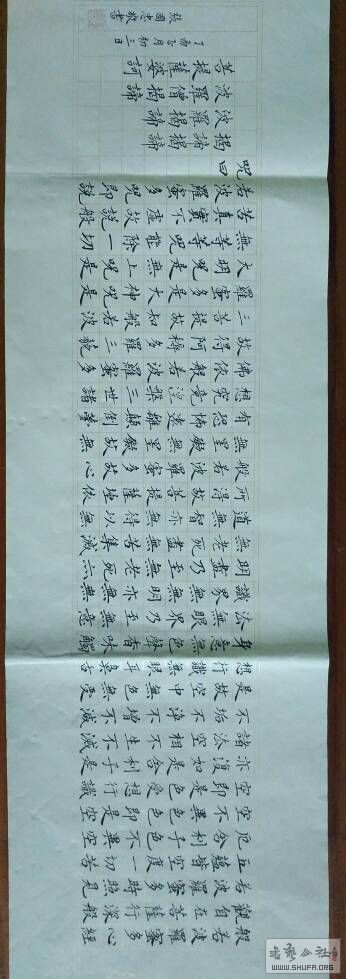 般若波羅蜜多心經
觀自在菩薩行深般
若波羅蜜多時照見
五蘊皆空度一切苦
厄舍利子色不異空
空不異色色即是空
空即是色受想行識
亦復如是舍利子是
諸法空相不生不滅
不垢不淨不增不減
是故空中無色無受
想行識無眼耳鼻舌
身意無色聲香味觸
法無眼界乃至無意
識界無無明亦無無
明盡乃至無老死亦
無老死盡無苦集滅
道無智亦無得以無
所得故菩提薩埵依
般若波羅蜜多故心
無罣礙無罣礙故無
有恐怖遠離顛倒夢
想究竟涅槃三世諸
佛依般若波羅蜜多
故得阿耨多羅三藐
三菩提故知般若波
羅蜜多是大神呪是
大明呪是無上呪是
無等等呪能除一切
苦真實不虛故說般
若波羅蜜多呪即說
呪曰
揭諦揭諦
波羅揭諦
波羅僧揭諦
菩提薩婆訶
丁酉月初二日
張國忠敬書
WWW.SHUFA.ORG